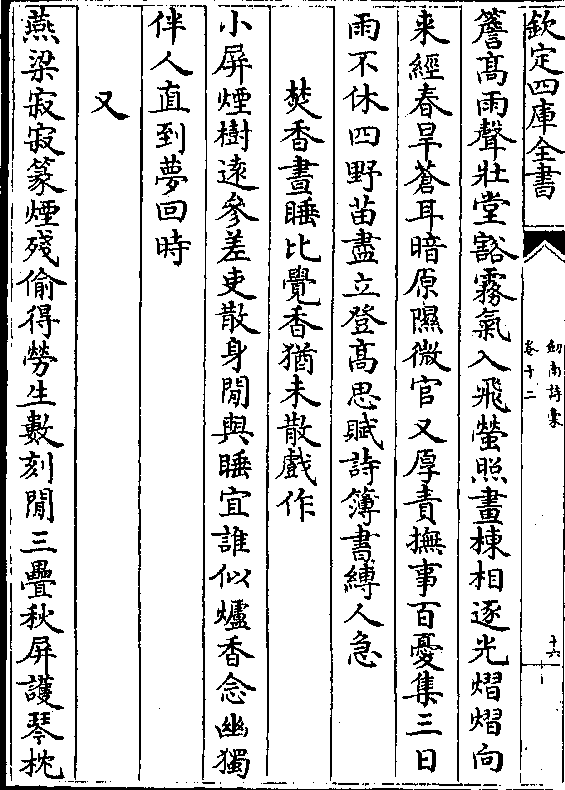 欽定四庫全書
劒南詩稾
卷十二
十六
簷高雨聲壯堂豁霧氣入飛螢照畫棟相逐光熠熠向
来經春旱蒼耳暗原隰微官又厚責撫事百憂集三日
雨不休四野苗盡立登高思賦詩簿書縛人急
焚香晝睡比覺香猶未散戲作
小屏煙樹遠參差吏散身閒與睡宜誰似爐香念幽獨
伴人直到夢回時
又
燕梁寂寂篆煙殘偷得勞生數刻閒三疊秋屏護琴枕